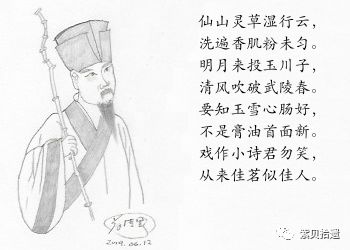 仙山灵草湿行云，
洗遍香肌粉未匀。
明月来投玉川子，
清风吹破武陵春。
要知玉雪心肠好，
不是膏油首面新。
戏作小诗君勿笑，
从来佳茗似佳人。
2019.06.12
紫贝拾遗